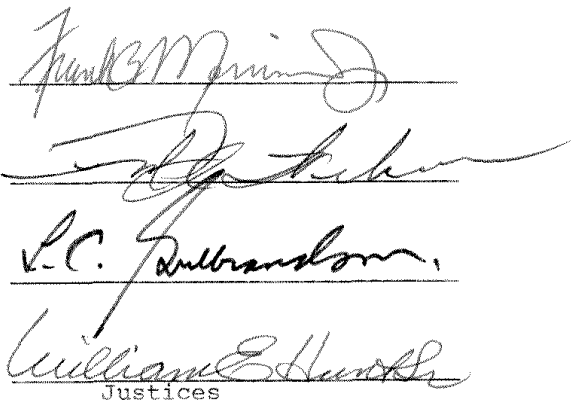 Frank B. Morrison Jr.
L. C. Gulbrandson.
William E. Hunt Sr
Justices